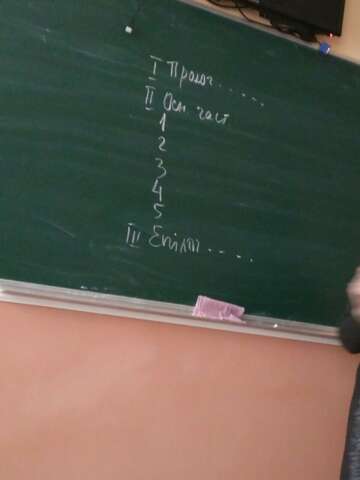 I Пролог.....
II Осн част
1
2
3
4
5
III Епілог....